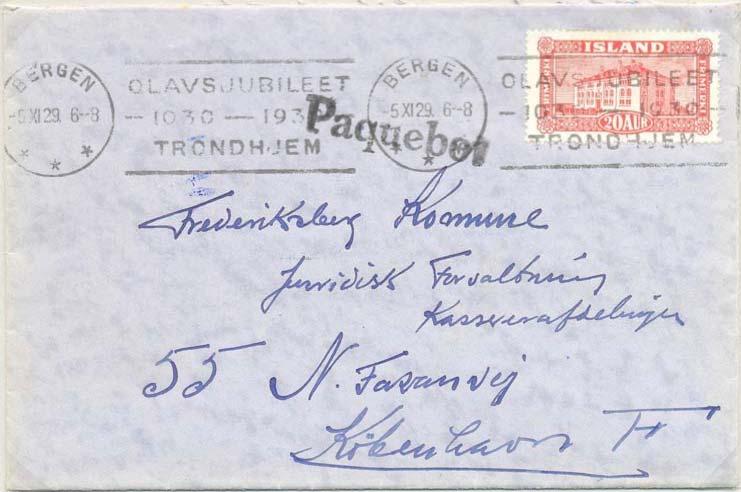 BERGEN
-5XI29. 6-8
OLAVSJUBILEET
-1030-193
TRONDHJEM
Paquebot
BERGEN
-5XI29. 6-8
OLAVSJUBILEET
-1030-
TRONDHJEM
ISLAND
FRIMERKI
FRIMERKI
20 AUR
Frederiksberg Kommune
Juridisk Forvaltning
Kasserer afdelingen
55 N. Fasanvej
København F